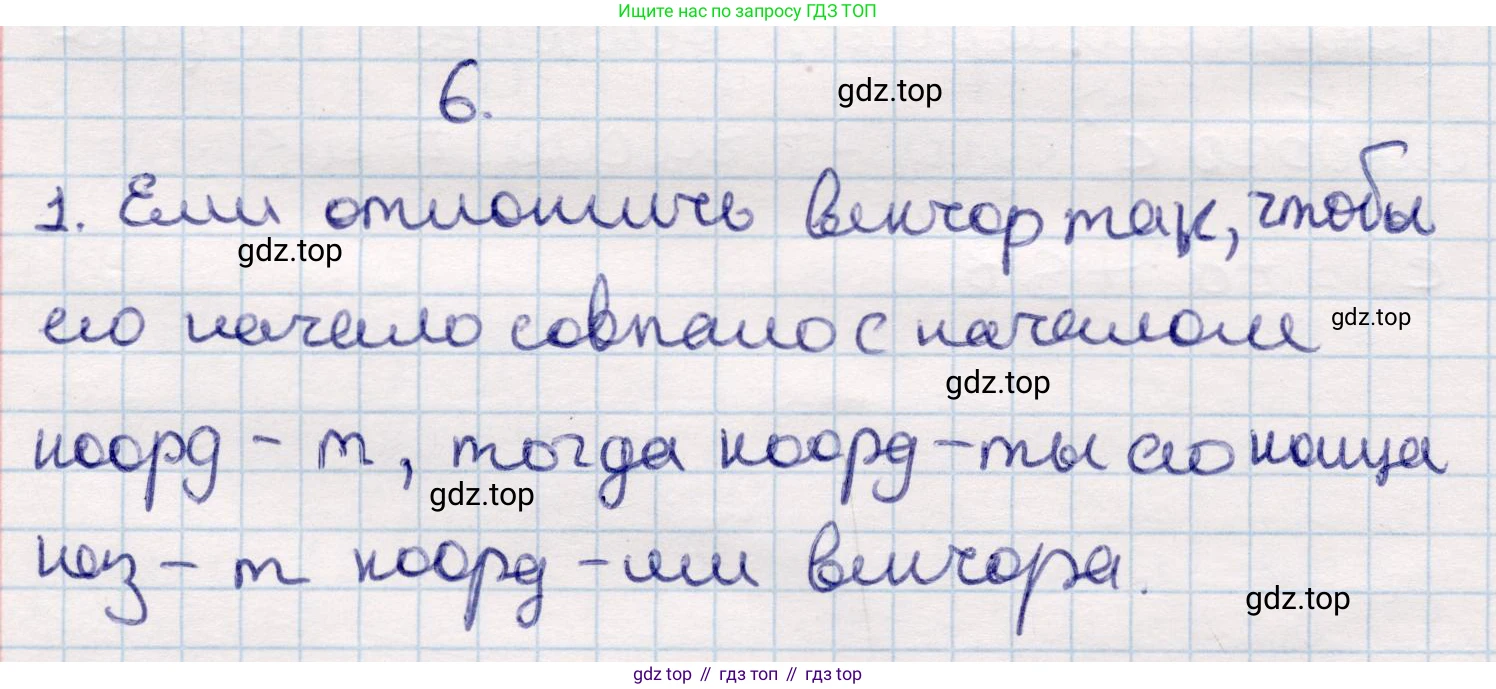 Ищите нас по запросу ГДЗ ТОП
6.
gdz.top
1. Если отложить вектор так, чтобы
gdz.top
его начало совпало с началом
gdz.top
gdz.top
коорд-т, тогда коорд-ты его конца
gdz.top
наз-т коорд-ми вектора.
gdz.top
gdz top // гдз топ // гдз top